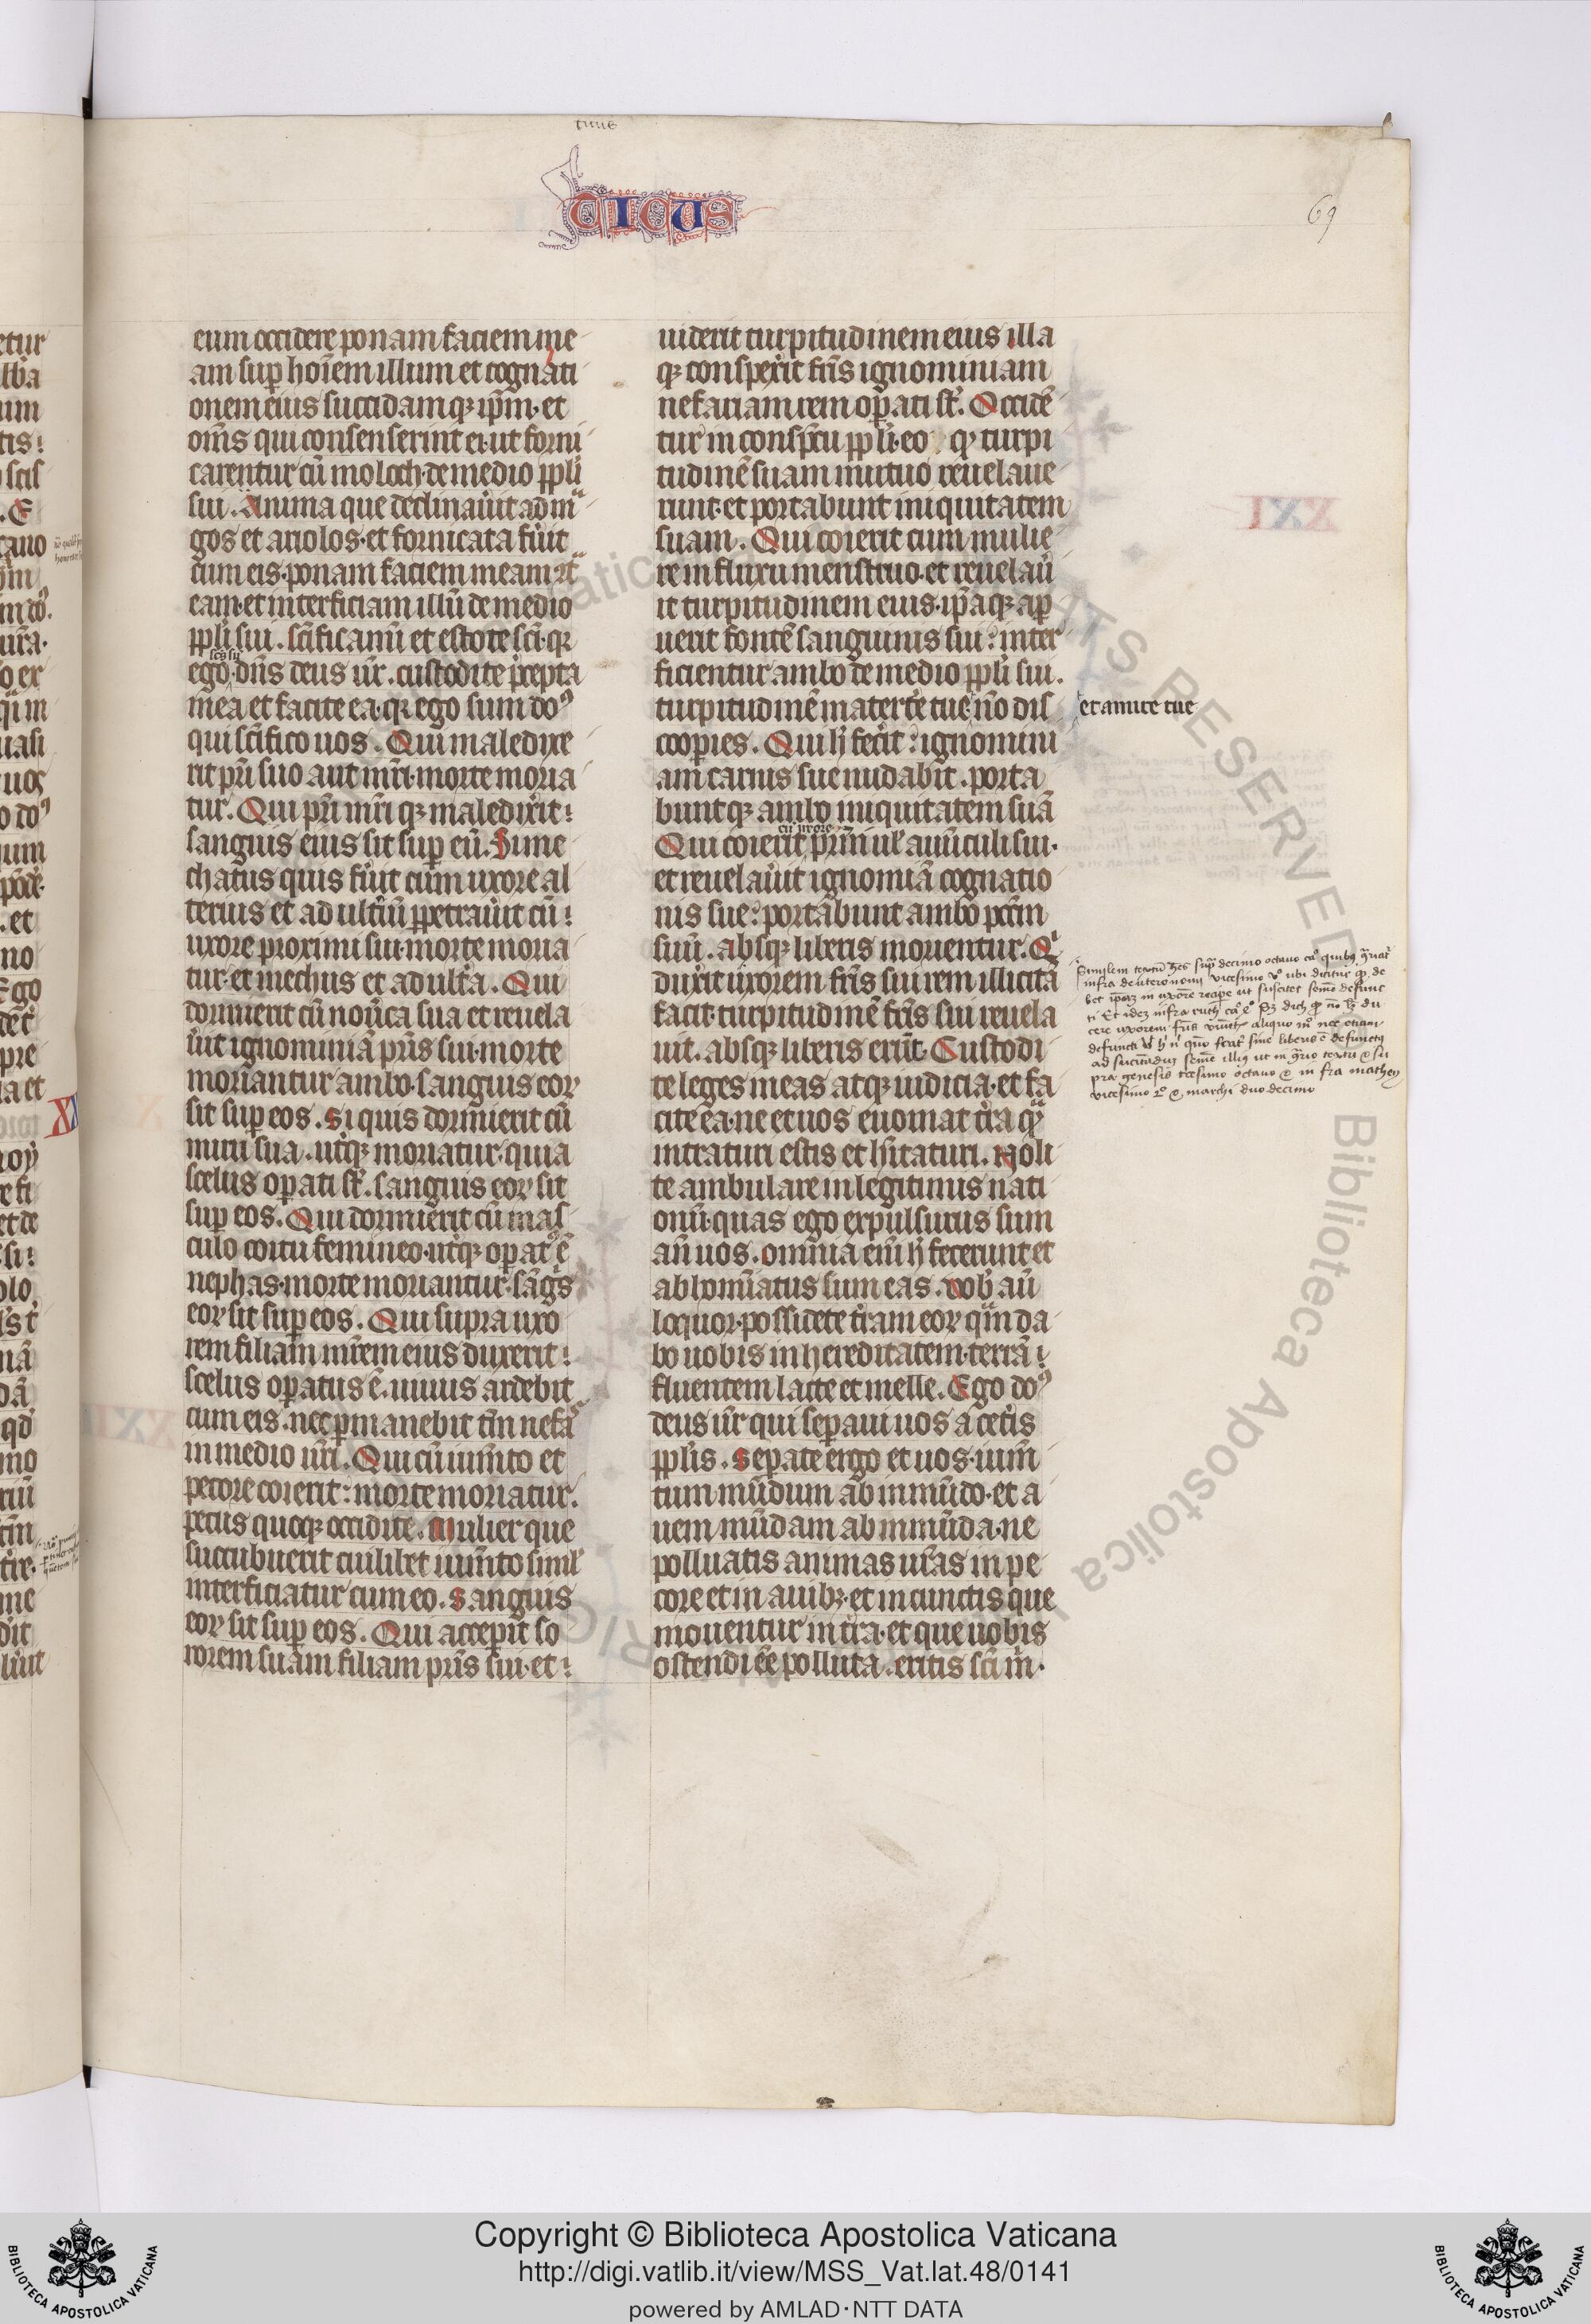 ticus
69
eum occidere ponam faciem me
am sup hoīem illum et cognati
onem eius succidamqꝫ ip̄m· et
om̄s qui consenserint ei· ut forni
carentur cū moloch· de medio ppl̓i
sui . Anima que declinau̓it ad ma
gos et ariolos· et fornicata fu̓it
cum eis· ponam faciem meam ꝯͣ
eam· et interficiam illū de medio
ppl̓i sui . sc̄ificamī et estote sc̄i· qꝛ
ego dn̄s deus ur̄ . custodite p̄cepta
mea et facite ea· qꝛ ego sum dōꝰ
qui sc̄ifico uos . Qui maledixe
rit pr̄i suo aut mr̄i· morte moria
tur . Qui pr̄i mr̄iqꝫ maledix̓it :
sanguis eius sit sup eū . Si me
chatus quis fu̓it cum uxore al
terius et adult̓iū ꝑpetrau̓it cū :
uxore proximi sui· morte moria
tur· et mechus et adult̓a . Qui
dormierit cū nou̓ca sua et reuela
u̓it ignominiā pr̄is sui· morte
moriantur ambo· sanguis eoꝝ
sit sup eos . Si quis dormierit cū
nuru sua . ut̓qꝫ moriatur· quia
scelus oꝑati st̄ . sanguis eoꝝ sit
sup eos . Qui dormierit cū mas
culo coitu femineo· ut̓qꝫ oꝑatꝰ ē
nephas· morte moriantur· sāgͥs
eoꝝ sit sup eos . Qui supra uxo
rem filiam mr̄em eius duxerit :
scelus oꝑatus ē . uiuus ardebit
cum eis . nec ꝑmanebit tm̄ nefaˢ
in medio ur̄i . Qui cū ium̄to et
pecore coierit : morte moriatur .
pecus quoqꝫ occidite . Mulier que
succubuerit cuilibet ium̄to siml̓
interficiatur cum eo . Sanguis
eoꝝ sit sup eos . Qui acceꝑit so
rorem suam filiam pr̄is sui· et :
uiderit turpitudinem eius illa
qꝫ conspex̓it fr̄is ignominiam
nefariam rem oꝑati st̄ . Occidē
tur in conspc̄u ppl̓i· eo qꝙ turpi
tudinē suam mutuo reuelaue
runt· et portabunt iniquitatem
suam . Qui coierit cum mulie
re in fluxu menstruo· et reuelau̓
it turpitudinem eius· ip̄aqꝫ aꝑ
uerit fontē sanguinis sui : inter
ficientur ambo de medio ppl̓i sui .
turpitudinē materte̓ tue nō dis
cooꝑies . Qui h̓ fec̓it : ignomini
am carnis sue nudabit . porta
buntqꝫ ambo iniquitatem suā
cū uxore
Qui coierit pr̄ui ul̓ auūculi sui·
et reuelau̓it ignomīā cognatio
nis sue : portabunt ambo pcc̄m
suū . absqꝫ liberis morientur . Qͥ
dux̓it uxorem fr̄is sui rem illicitā
facit· turpitudinē fr̄is sui reuela
uit . absqꝫ liberis erūt . Custodi
te leges meas atqꝫ iudicia· et fa
cite ea· ne et uos euomat t̓ra quā
intraturi estis et h̓itaturi . Noli
te ambulare in legitimis nati
onū· quas ego expulsurus sum
an̄ uos . omnia enī h̓ fecerunt et
abhomīatus sum eas . Uob̓ au̓
loquor· possidete t̓ram eoꝝ quā da
bo uobis in hereditatem· terrā :
fluentem lacte et melle . Ego dōꝰ
deus ur̄ qui seꝑaui uos a cet̓is
ppl̓is . Seꝑate ergo et uos· ium̄
tum mūdum ab inmūdo· et a
uem mūdam ab inmūda· ne
polluatis animas ur̄as in pe
core et in auibꝫ· et in cunctis que
mouentur in t̓ra· et que uobis
ostendi eē polluta . eritis sc̄i m̓·
et amite tue
Copyright © Biblioteca Apostolica Vaticana
http://digi.vatlib.it/view/MSS_Vat.lat.48/0141
powered by AMLAD·NTT DATA
BIBLIOTECA APOSTOLICA VATICANA
BIBLIOTECA APOSTOLICA VATICANA